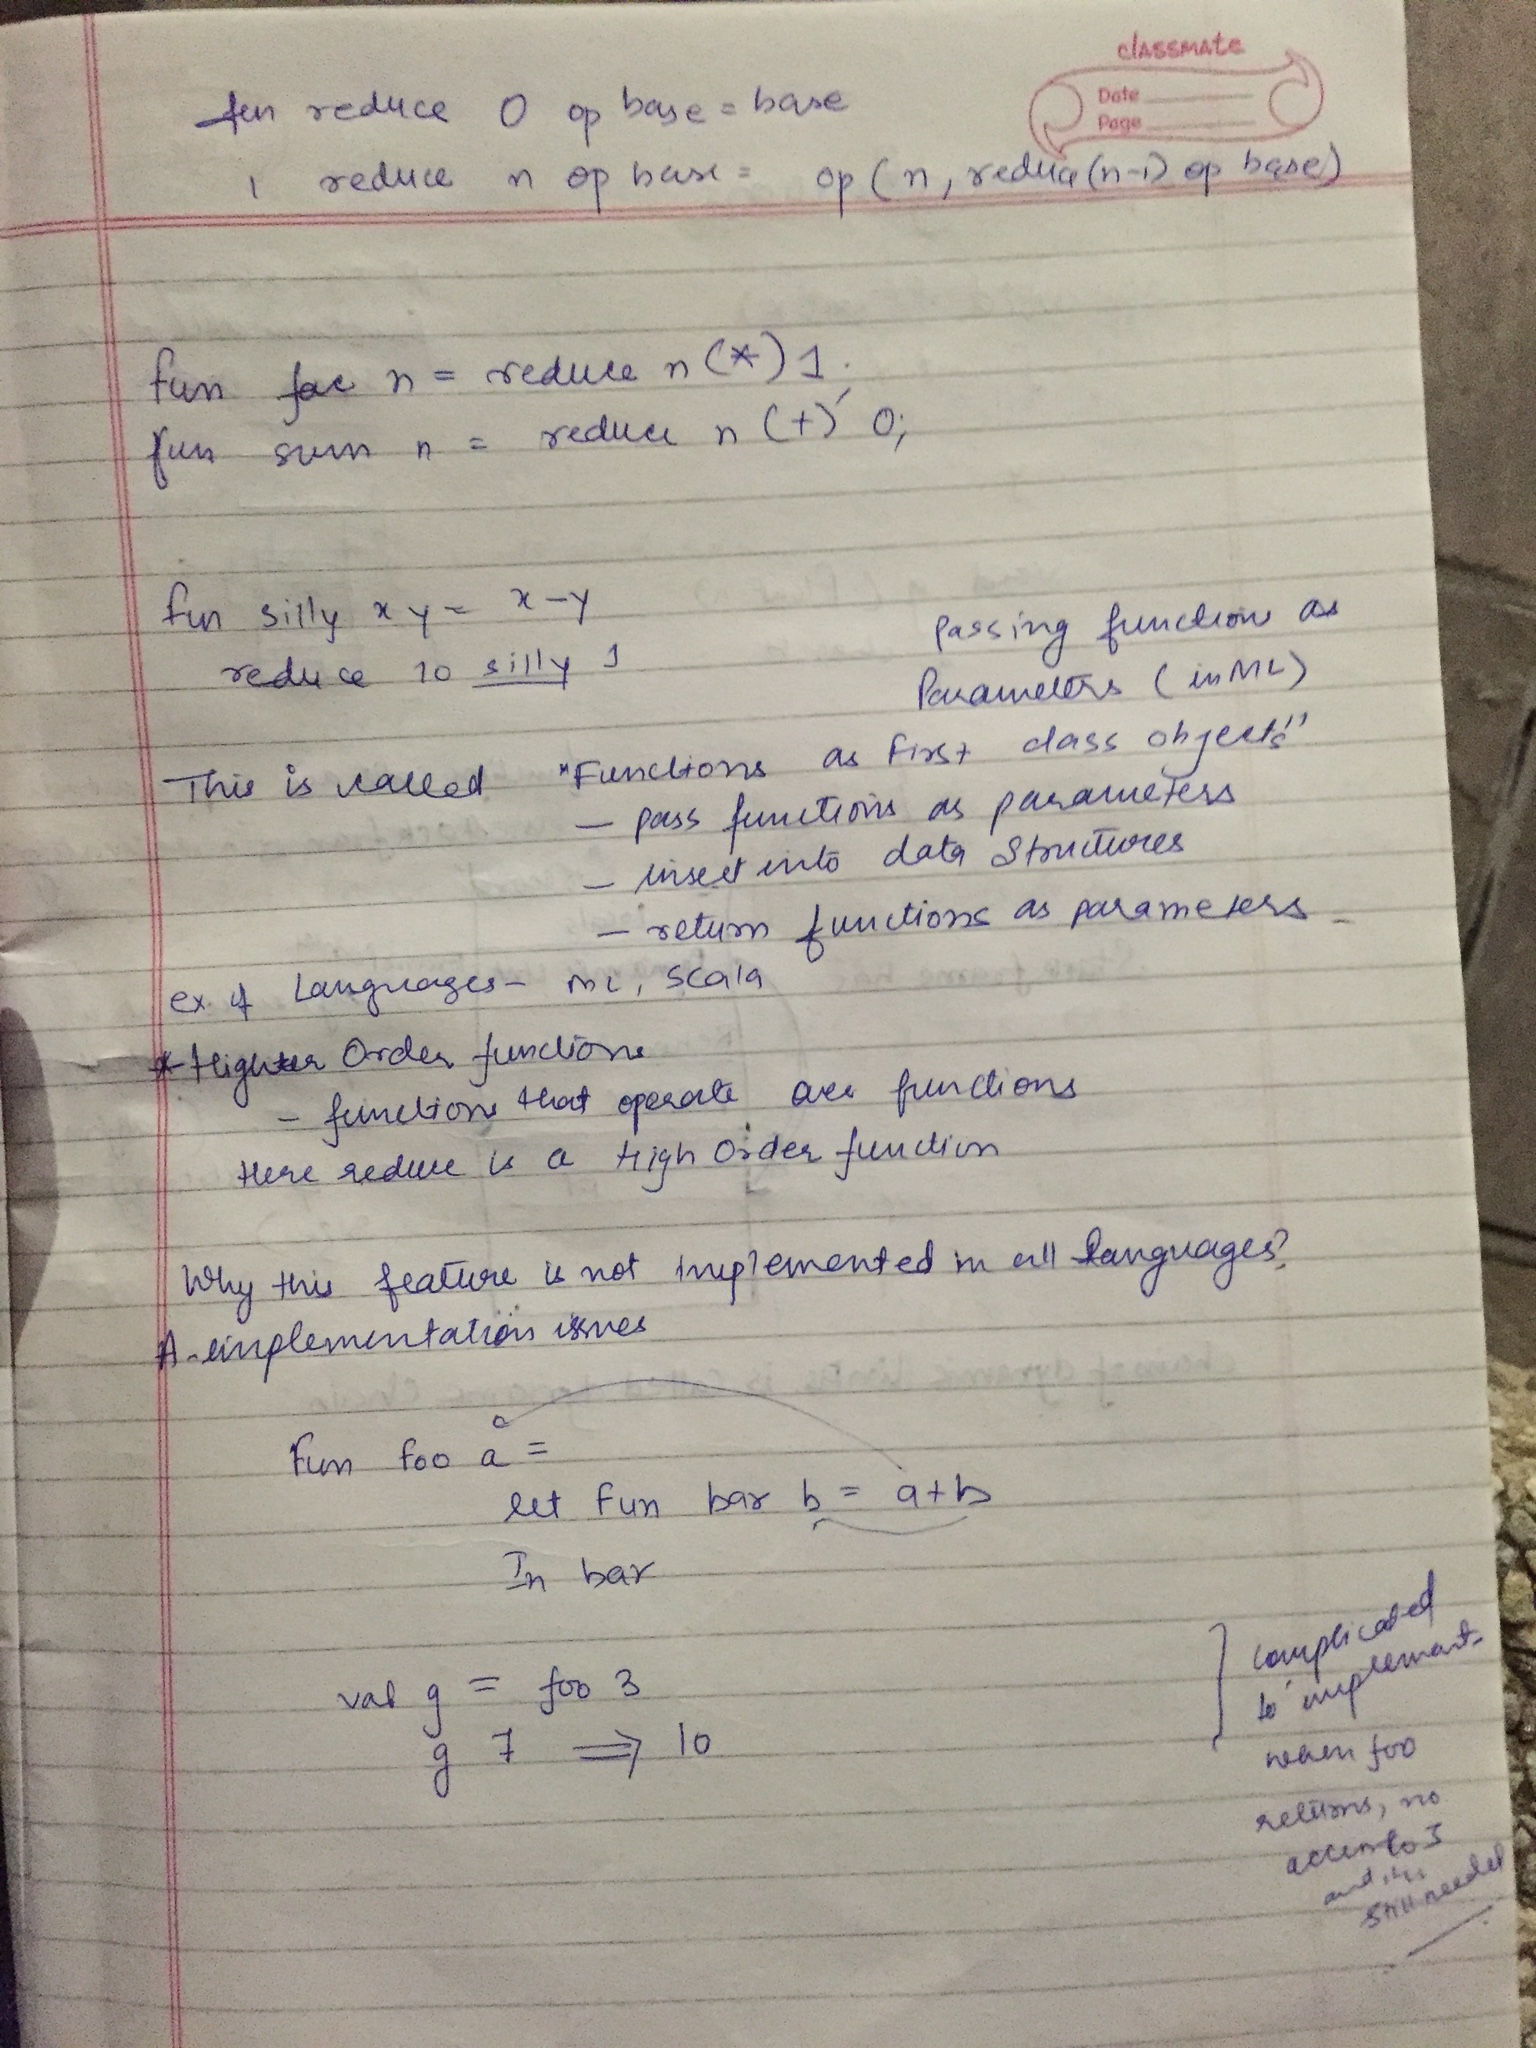 classmate
Date
Page
fun reduce 0 op base = base
| reduce n op base = op (n, reduce (n-1) op base)
fun fac n = reduce n (*) 1;
fun sum n = reduce n (+) 0;
fun silly x y = x-y
reduce 10 silly 1
passing function as
Parameters (in ML)
This is called "Functions as First class objects"
- pass functions as parameters
- insert into data structures
- return functions as parameters
ex. of Languages - ML, Scala
* Higher Order functions
- functions that operate over functions
Here reduce is a High Order function
Why this feature is not implemented in all languages?
A - implementation issues
Fun foo a =
let fun bar b = a+b
In bar
val g = foo 3
g 7 ⟹ 10
complicated
to implement
when foo
returns, no
access to 3
and it's
still needed